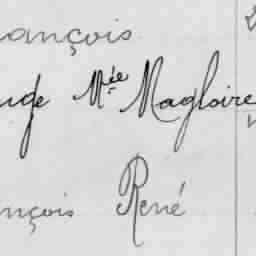 ançois
uge Mte Magloire
nçois René